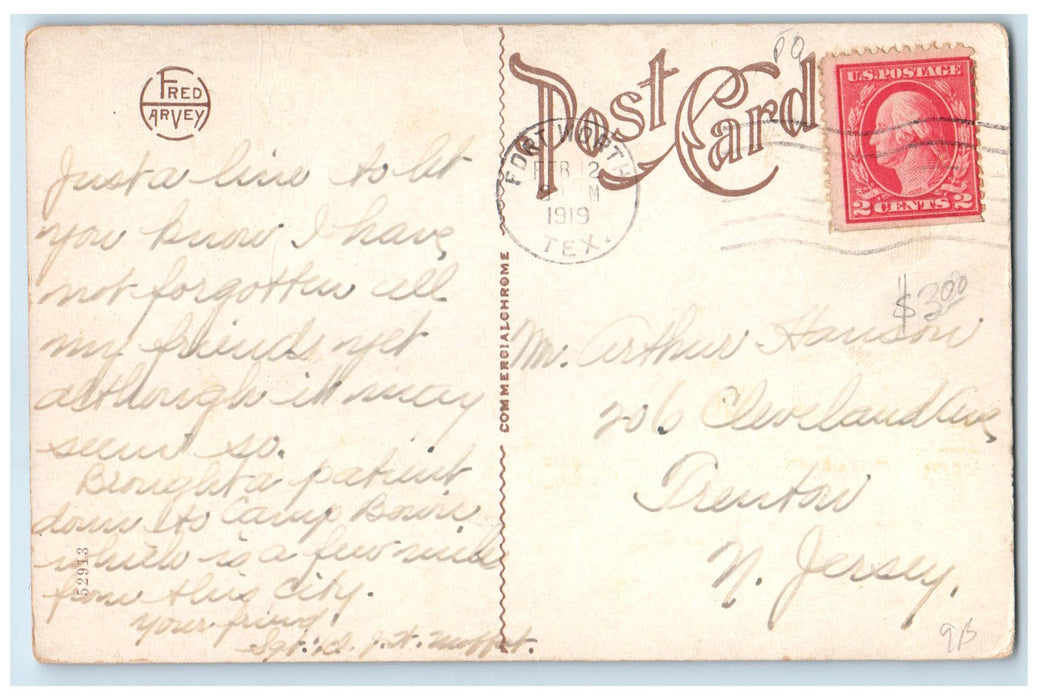 FRED
HARVEY
POST CARD
U.S. POSTAGE
2 CENTS 2
FORT WORTH
FEB 12
M
1919
TEX.
Just a line to let
you know I have
not forgotten all
my friends yet
although it may
seem so.
Brought a patient
down to Camp Bowie
which is a few miles
from this City.
Your friend,
Sgt. J. H. Moffet.
COMMERCIALCHROME
52913
$3.00
Mr. Arthur Hanson
206 Cleveland Ave
Trenton
N. Jersey.
9B